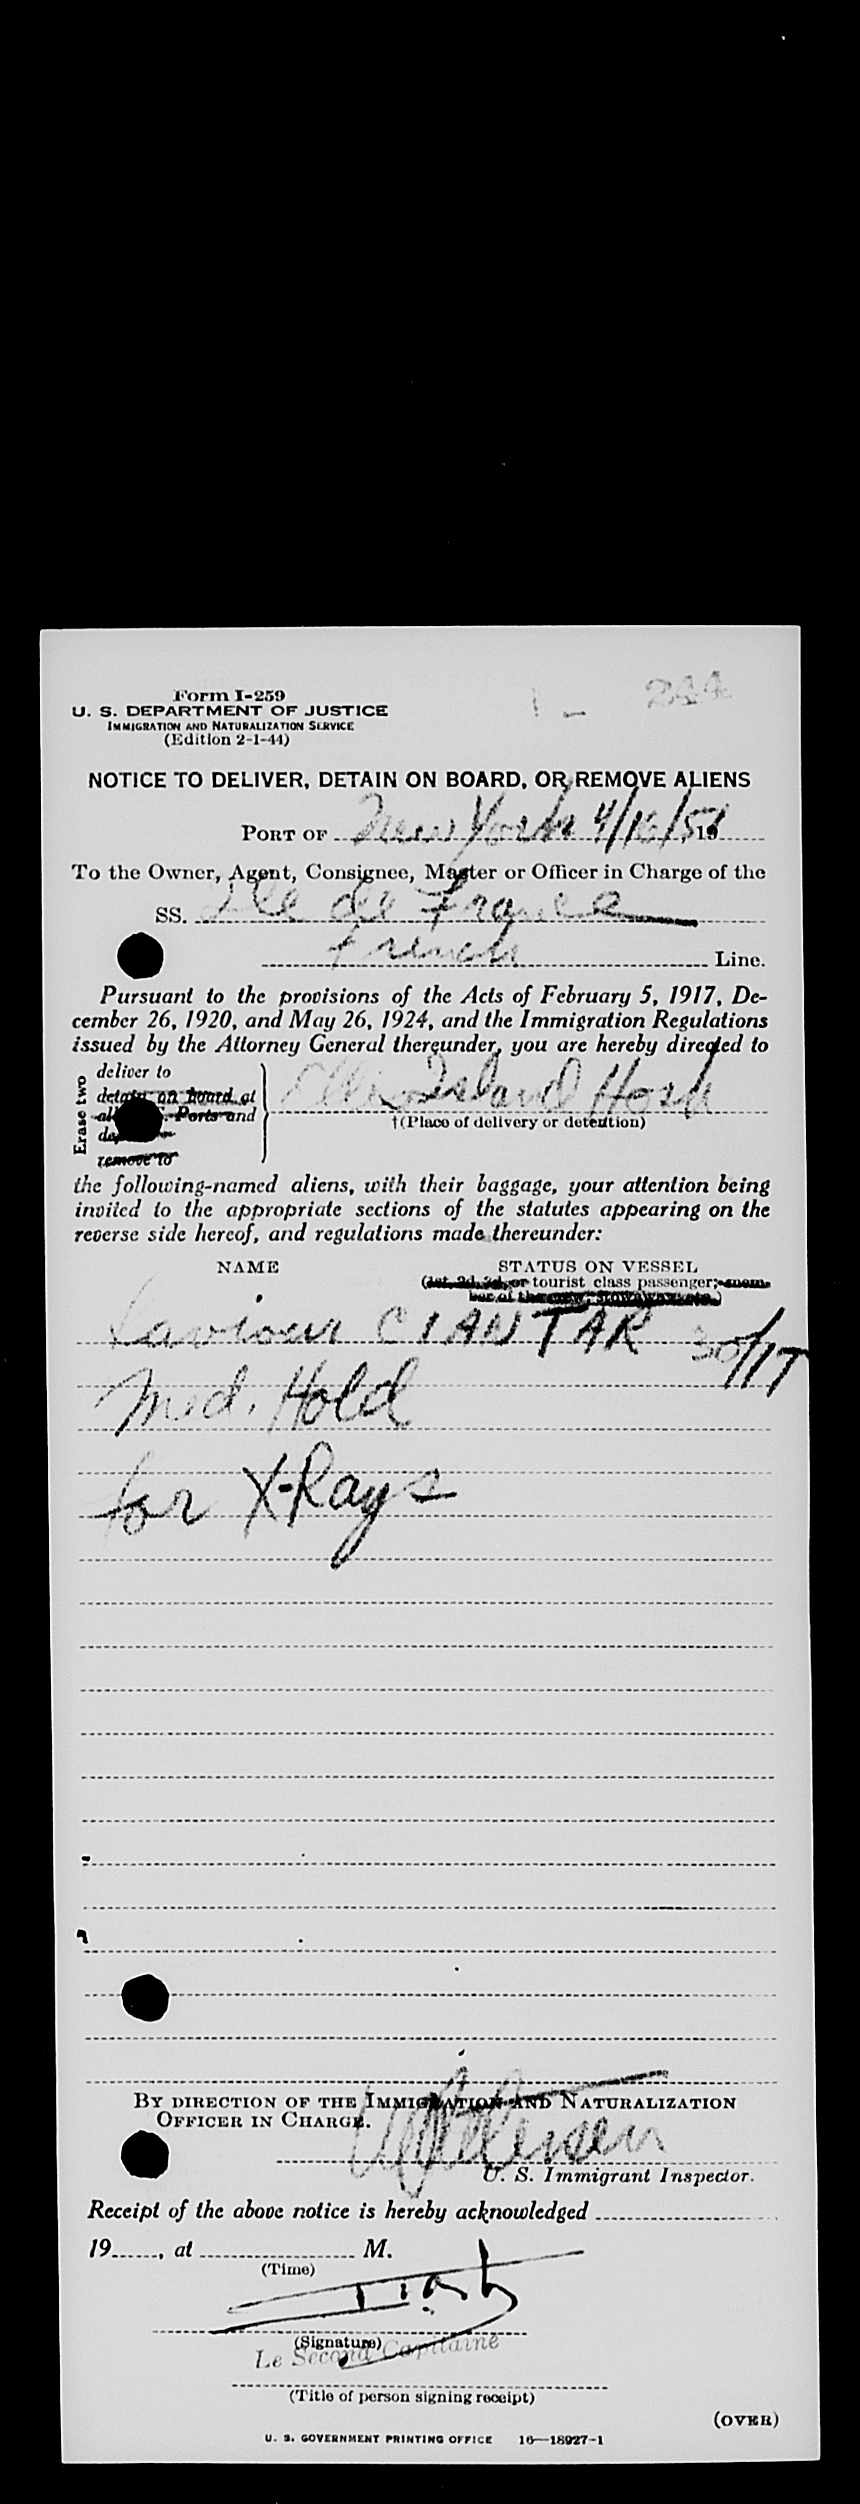 244
Form I-259
U. S. DEPARTMENT OF JUSTICE
IMMIGRATION AND NATURALIZATION SERVICE
(Edition 2-1-44)
NOTICE TO DELIVER, DETAIN ON BOARD, OR REMOVE ALIENS
PORT OF New York 4/16/51 19
To the Owner, Agent, Consignee, Master or Officer in Charge of the
SS. Ile de France
French Line.
Pursuant to the provisions of the Acts of February 5, 1917, De-
cember 26, 1920, and May 26, 1924, and the Immigration Regulations
issued by the Attorney General thereunder, you are hereby directed to
Erase two
deliver to
detain on board at
Ports and
remove to
Ellis Island Hosp
†(Place of delivery or detention)
the following-named aliens, with their baggage, your attention being
invited to the appropriate sections of the statutes appearing on the
reverse side hereof, and regulations made thereunder:
NAME STATUS ON VESSEL
(1st, 2d, 3d, or tourist class passenger; mem-
ber of the crew, stowaway, etc.)
Saviour CIANTAR 30/17
Med. Hold
for X-Rays
BY DIRECTION OF THE IMMIGRATION AND NATURALIZATION
OFFICER IN CHARGE.
U. S. Immigrant Inspector.
Receipt of the above notice is hereby acknowledged
19......, at M.
(Time)
(Signature)
Le Second Capitaine
(Title of person signing receipt)
(OVER)
U. S. GOVERNMENT PRINTING OFFICE 16—18927-1